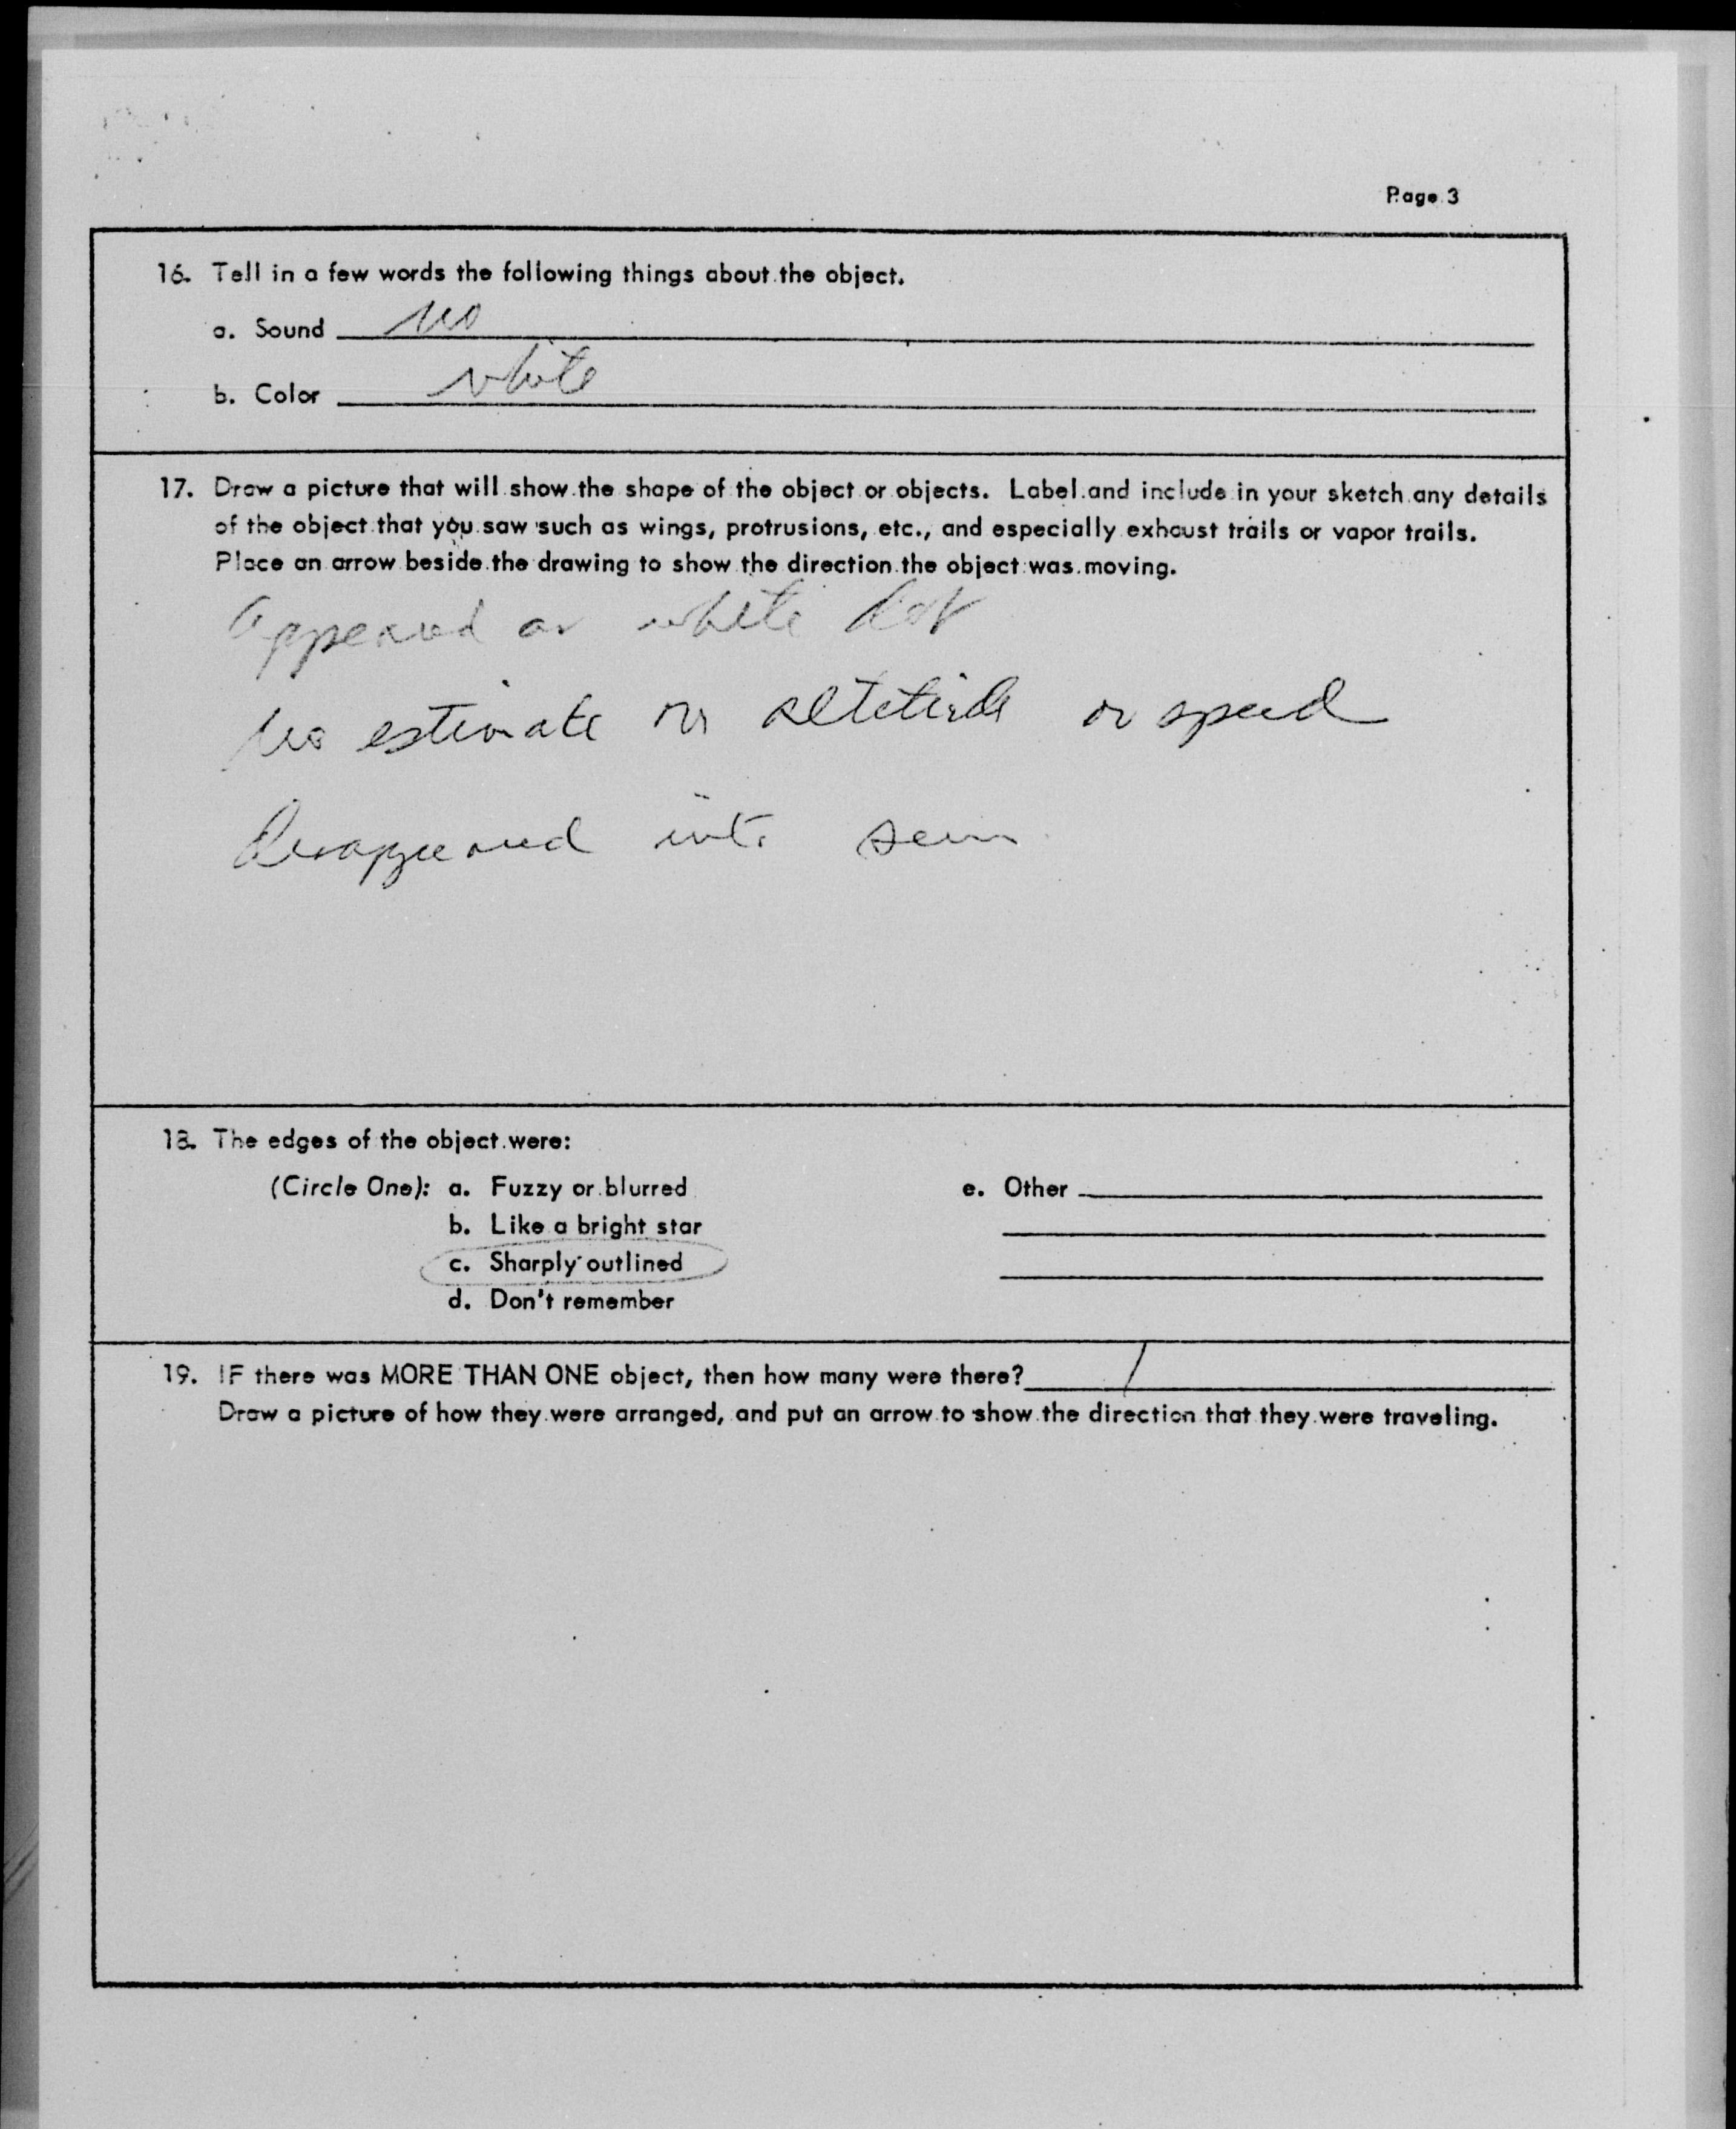 Page 3
16. Tell in a few words the following things about the object.
a. Sound no
b. Color white
17. Draw a picture that will show the shape of the object or objects. Label and include in your sketch any details
of the object that you saw such as wings, protrusions, etc., and especially exhaust trails or vapor trails.
Place an arrow beside the drawing to show the direction the object was moving.
Appeared as white dot
No estimate on altitude or speed
Disappeared into sun
18. The edges of the object were:
(Circle One): a. Fuzzy or blurred e. Other
b. Like a bright star
c. Sharply outlined
d. Don't remember
19. IF there was MORE THAN ONE object, then how many were there? 1
Draw a picture of how they were arranged, and put an arrow to show the direction that they were traveling.